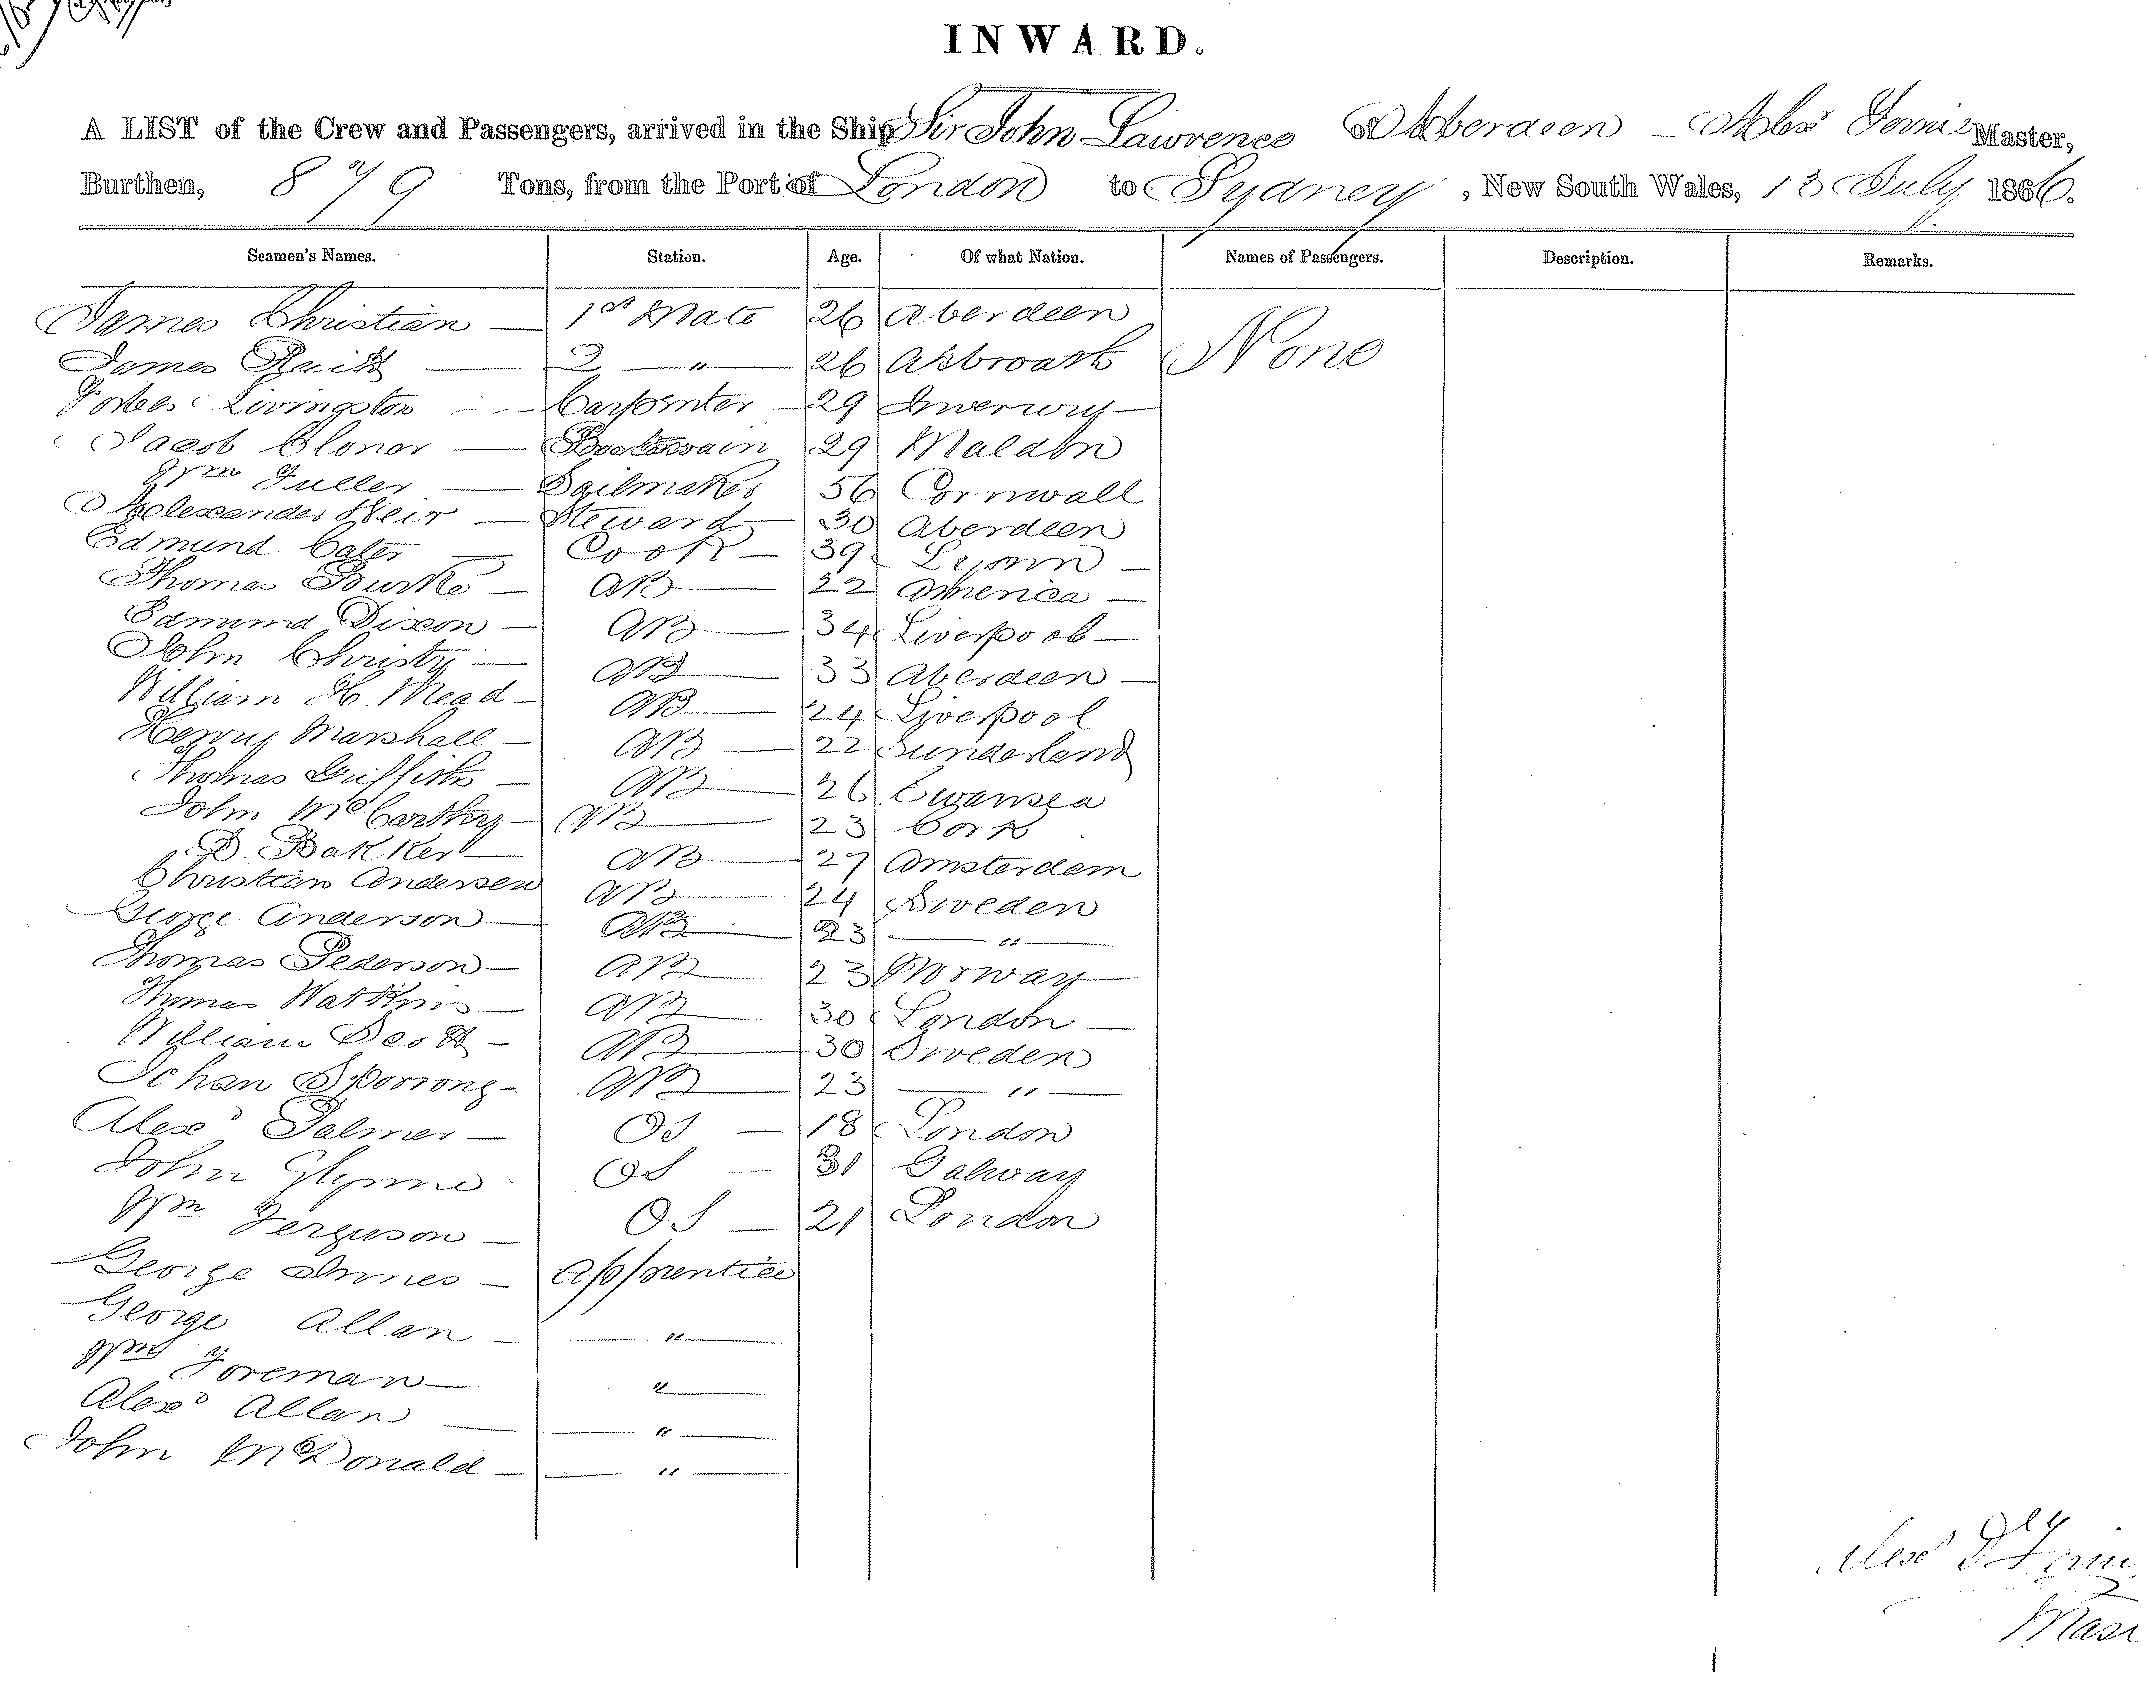 INWARD.
A LIST of the Crew and Passengers, arrived in the Ship Sir John Lawrence of Aberdeen - Master,
Burthen, 879 Tons, from the Port of London to Sydney, New South Wales, 13 July 1866.
Seamen's Names. Station. Age. Of what Nation. Names of Passengers. Description. Remarks.
James Christian — 1st Mate 26 Aberdeen None
James — 2 — " — 26
Forbes Livingston — Carpenter — 29 —
Jacob — Boatswain 29 Maldon
Wm Fuller — Sailmaker 56 Cornwall
Alexander Weir — Steward — 30 Aberdeen
Edmund Cater — Cook — 39 Lynn —
Thomas Bourke — AB — 22 America —
Edmund Dixon — AB — 34 Liverpool —
John Christy — AB — 33 Aberdeen —
William H. Mead — AB — 24 Liverpool
Henry Marshall — AB — 22 Sunderland
Thomas Griffiths — AB — 26 Swansea
John McCarthy — AB — 23 Cork
D. Bakker — AB — 27 Amsterdam
Christian Andersen AB — 24 Sweden
George Anderson — AB — 23 — " —
Thomas Pederson — AB — 23 Norway —
Thomas Watkins — AB — 30 London —
William Scott — AB — 30 Sweden
Johan Sporrong — AB — 23 — " —
Alexr Palmer — OS — 18 London
John Glynne OS — 31 Galway
Wm Ferguson — OS — 21 London
George Innes — Apprentice
George Allan — — " —
Wm Foreman — " —
Alexr Allan — — " —
John McDonald — — " —